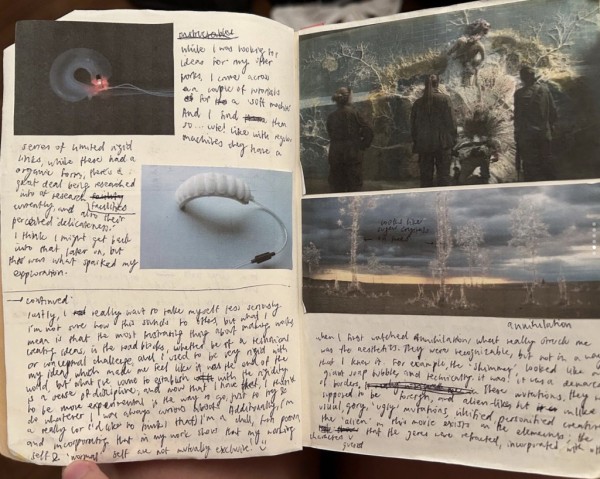 While I was looking for
ideas for my other
works, I came across
a couple of tutorials
for a 'soft machine'
And I find them
so... cute! like with regular
machines they have a
series of limited rigid
links, while these had a
organic form, there's a
great deal being researched
into at research
facilities
currently, and also their
perceived 'delicateness'.
I think I might get back
into that later on, but
that was what sparked my
exploration.
→ continued:
lastly, I really want to take myself less seriously.
I'm not sure how this sounds to others, but what I
mean is that the most frustrating thing about making works,
creating ideas, is the road blocks, whether be it a technical
or conceptual challenge, and I used to be very rigid with
my ideas which made me feel like it was the end of the
world. but what I've come to establish with the rigidity
is a sense of discipline, and now that I have that, I think
to be more experimental is the way to go, just to try &
do whatever I was always curious about! Additionally, I'm
a really (or I'd like to think that) I'm a chill, fun person,
and incorporating that in my work shows that my working
self & 'normal' self are not mutually exclusive. :)
annihilation
when I first watched Annihilation what really struck me
was the aesthetics. They were recognizable, but not in a way
that I knew it. For example, the 'shimmer' looked like a
giant soap bubble, and technically, it was, it was a
of borders, These mutations, they were
supposed to be foreign, alien-like, but unlike
usual, gory, 'ugly' mutations, vilified personified creatures
'alien' in this movie exists in the
that the genes were refracted, incorporated with other
characters
the